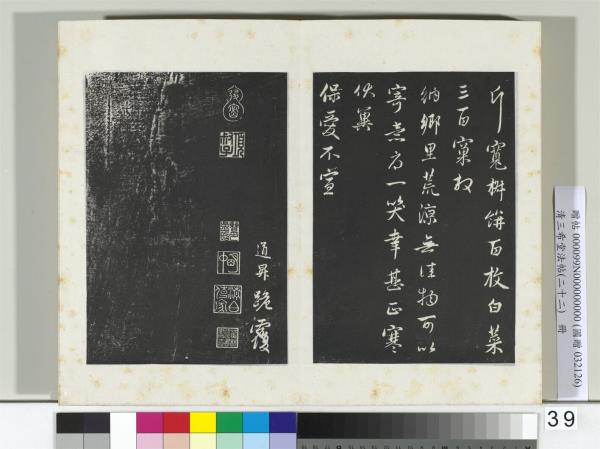 斤寬柿餅百枚白菜
三百窠
納鄉里荒涼無佳物可以
寄意一笑幸甚正寒
伏冀
保愛不宣
道昇跪覆
贈帖 000099N000000000 (國贈 032126)
清三希堂法帖(二十二) 冊
39